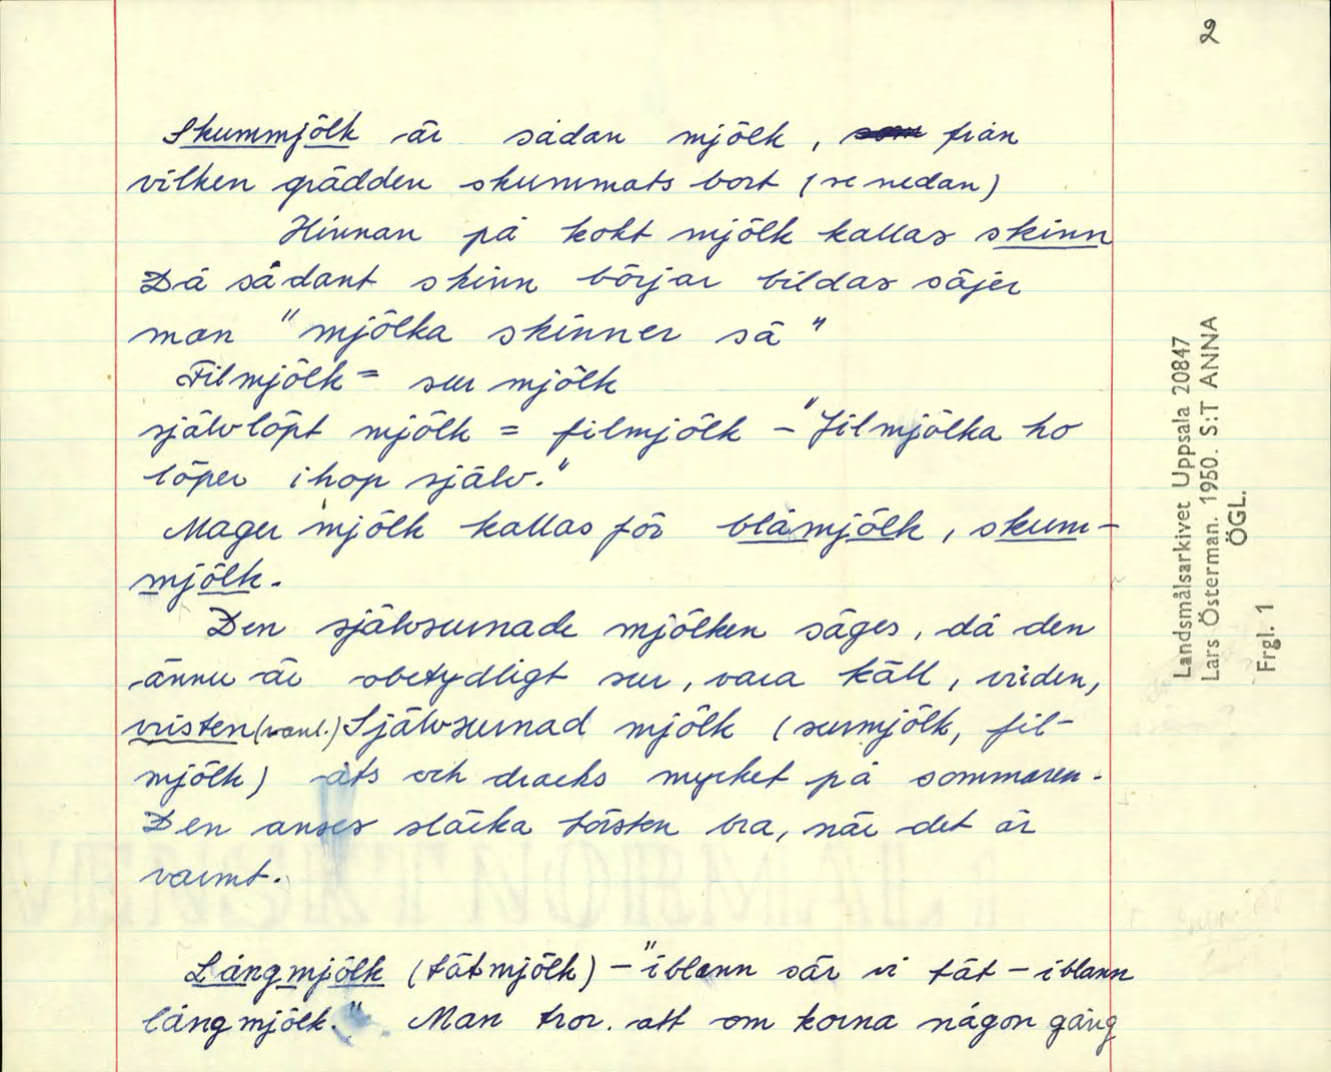 2
Skummjölk är sådan mjölk, som från
vilken grädden skummats bort (se nedan)
Hinnan på kokt mjölk kallas skinn
Då sådant skinn börjar bildas säjer
man "mjölka skinner så"
Filmjölk = sur mjölk
självlöpt mjölk = filmjölk - "filmjölka ho
löper ihop själv."
Mager mjölk kallas för blåmjölk, skum-
mjölk.
Den självsurnade mjölken säges, då den
ännu är obetydligt sur, vara käll, vriden,
vristen (vanl.) Självsurnad mjölk (surmjölk, fil-
mjölk) äts och dracks mycket på sommaren.
Den anses släcka törsten bra, när det är
varmt.
Långmjölk (tätmjölk) - "iblann sär vi tät - iblann
långmjölk." Man tror att om korna någon gång
Landsmålsarkivet Uppsala 20847
Lars Österman. 1950. S:T ANNA
ÖGL.
Frgl. 1